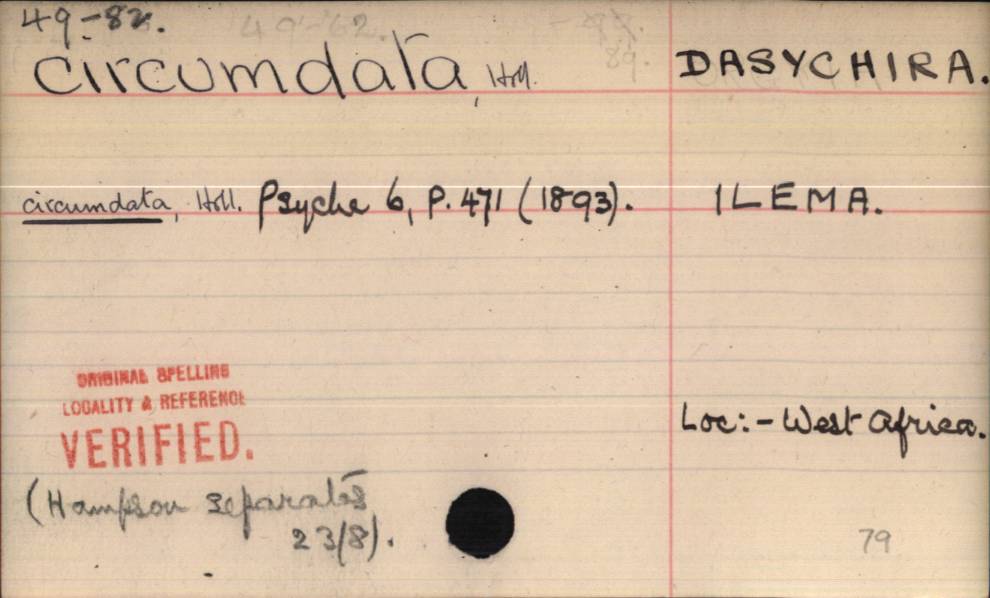 49-82.
49-62.
89.
circumdata, Holl. DASYCHIRA.
circumdata, Holl. Psyche 6, P. 471 (1893). ILEMA.
ORIGINAL SPELLING
LOCALITY & REFERENCE
VERIFIED.
Loc:- West Africa.
(Hampson separates
23/8).
79